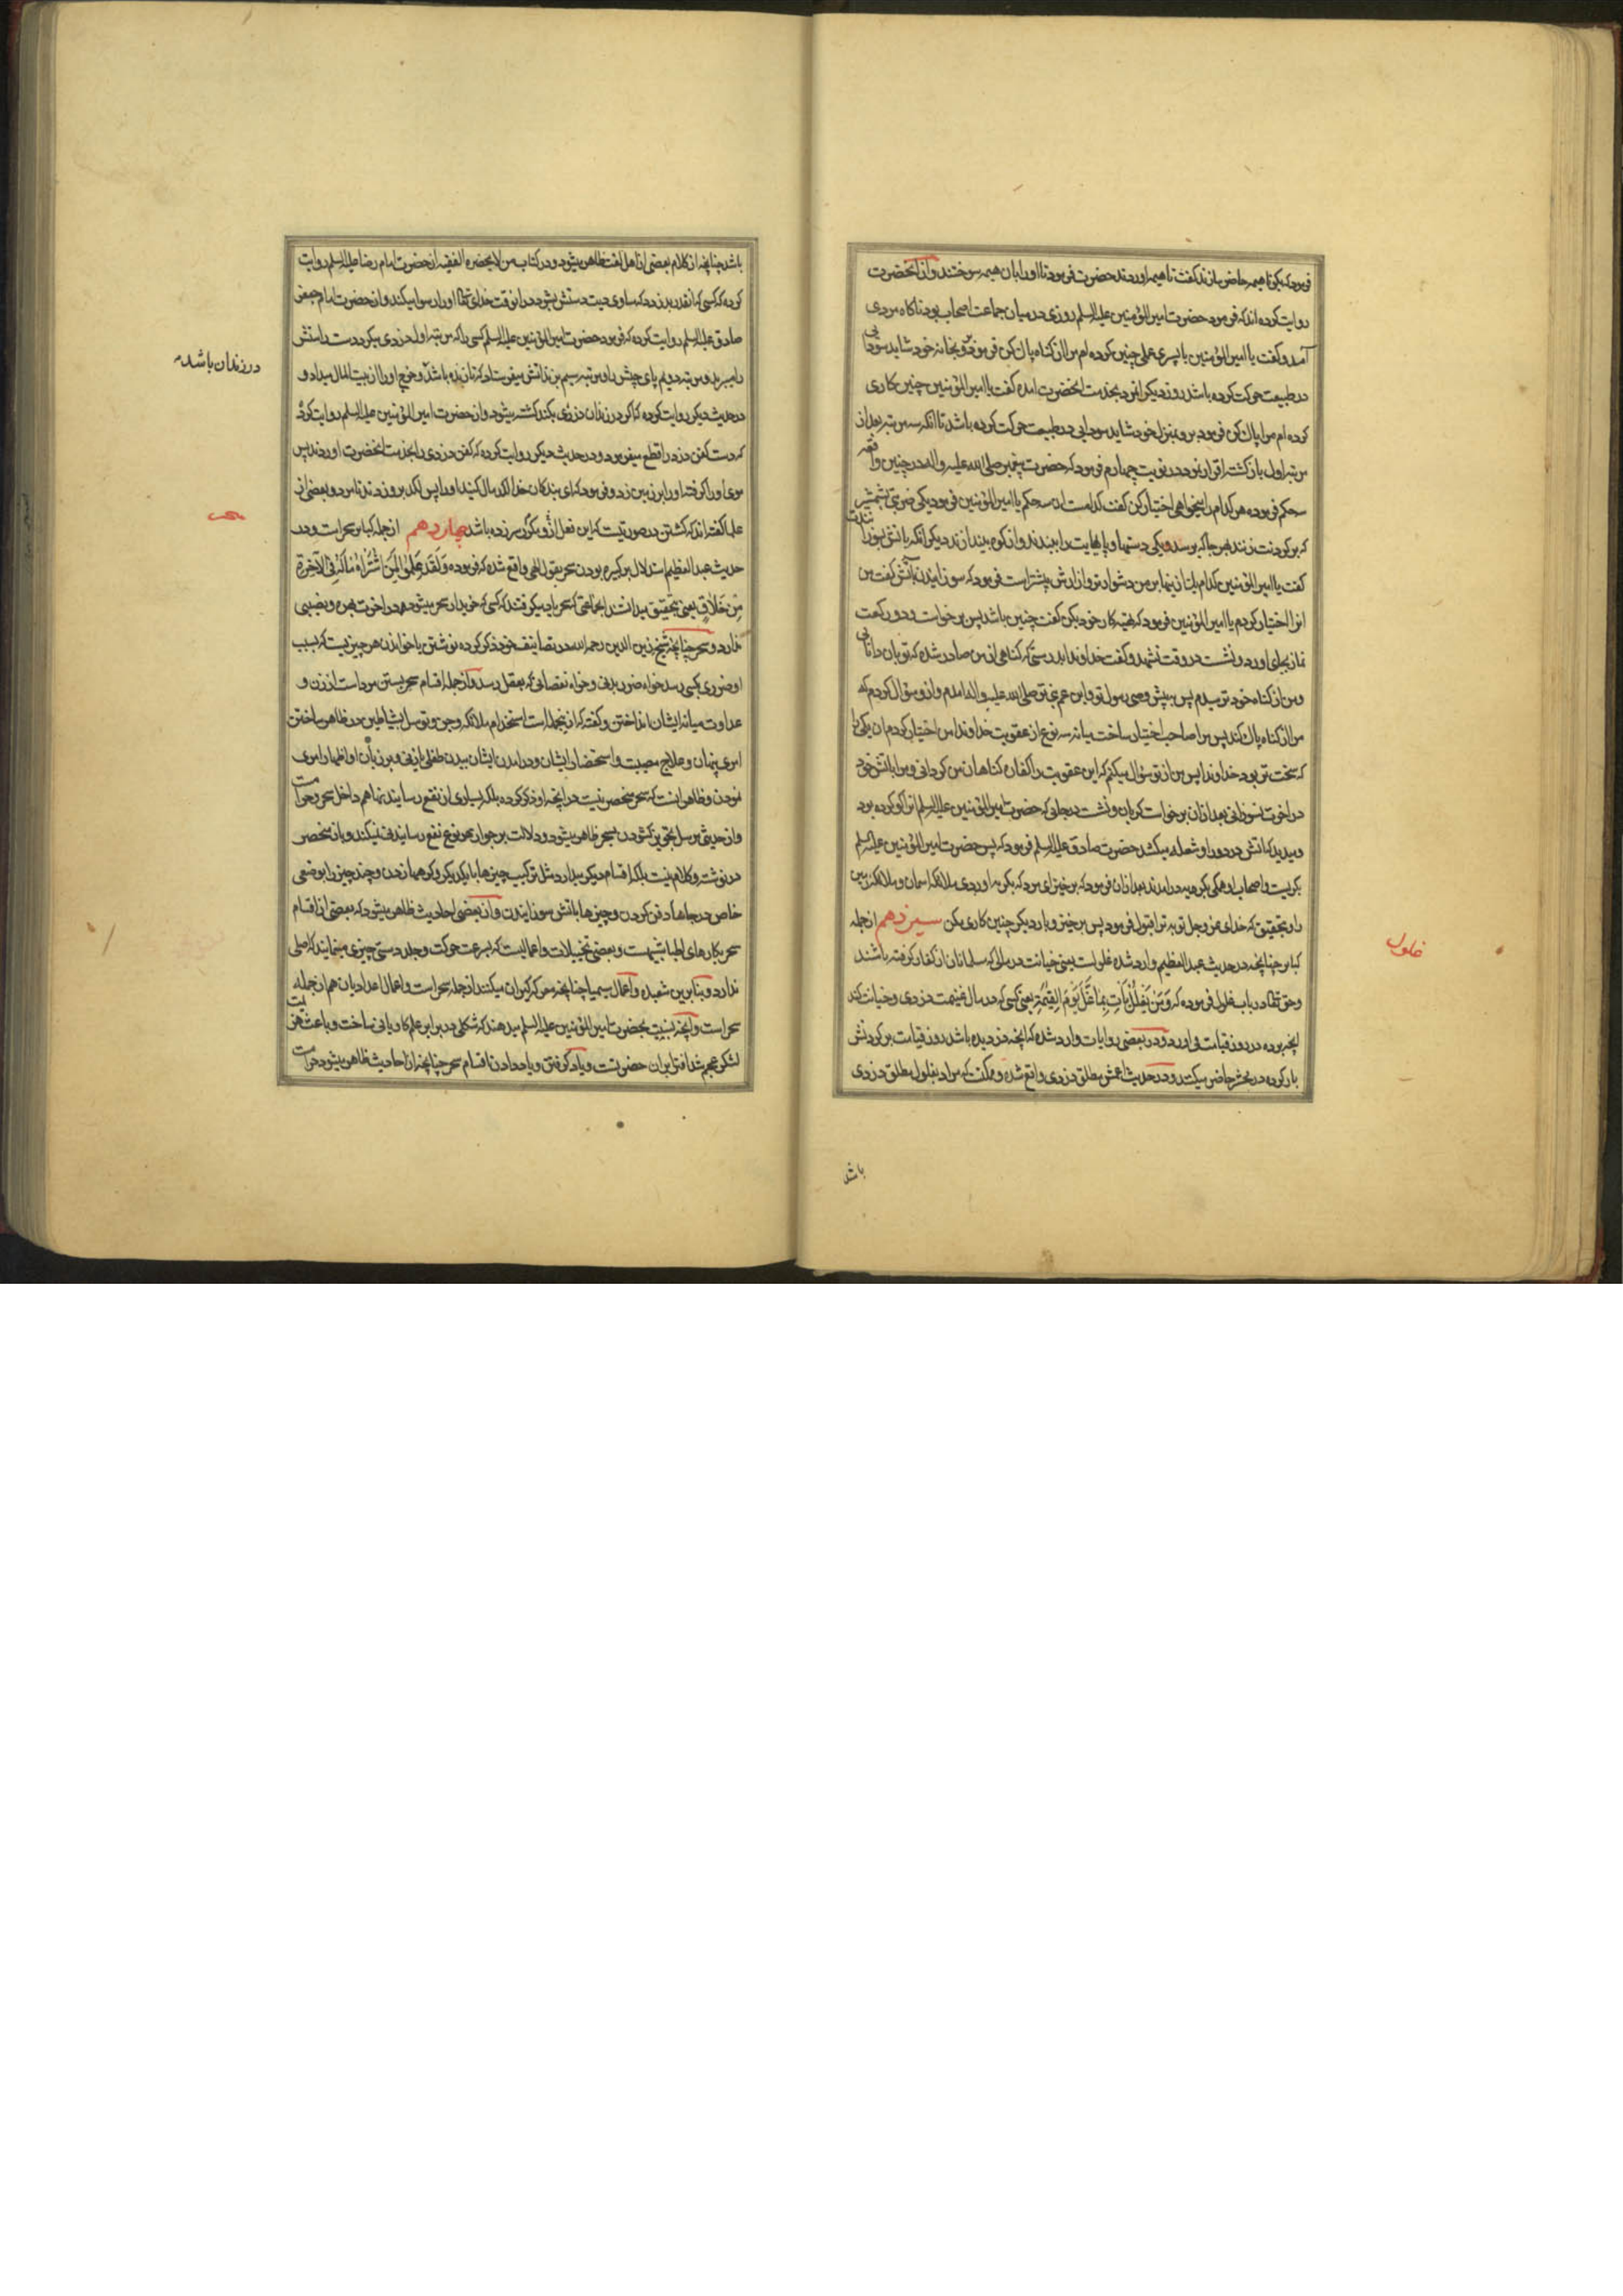 فرمود که بکو تا هیمه حاضر سازند کفت تا هیمه اوردند حضرت فرمود تا او را بان هیمه سوختند و از انحضرت
روایت کرده اند که فرمود حضرت امیر المؤمنین علیه السلم روزی در میان جماعت اصحاب بود ناکاه مردی
آمد و کفت یا امیر المؤمنین با پسری عملی چنین کرده ام مرا از کناه پاک کن فرمود برو بخانه خود شاید سودایی
در طبیعت حرکت کرده باشد روز دیکر انمرد بخدمت انحضرت امده کفت یا امیر المؤمنین چنین کاری
کرده ام مرا پاک کن فرمود برو بمنزل خود شاید سودایی در طبیعت حرکت کرده باشد تا انکه سه مرتبه بعد از
مرتبه اول بازکشته اقرار نمود در نوبت چهارم فرمود که حضرت پیغمبر صلی الله علیه واله در چنین واقعه
سه حکم فرموده هر کدام را میخواهی اختیار کن کفت کدامست ان سه حکم یا امیر المؤمنین فرمود یکی ضربتی بشمشیر
که بر کردنت زنند بهر جا که برسد و یکی دستها و پایهایت را ببندند و از کوه بیندازند دیکر انکه باتش بسوزانندت
کفت یا امیر المؤمنین کدام یک از اینها بر من دشوارتر و ازارش بیشتر است فرمود که سوزانیدن باتش کفت من
انرا اختیار کردم یا امیر المؤمنین فرمود که تهیه کار خود بکن کفت چنین باشد پس برخواست و دو رکعت
نماز بجای اورد و نشست در وقت تشهد و کفت خداوندا بدرستی که کناهی از من صادر شده که تو بان دانایی
و من از کناه خود ترسیدم پس به پیش وصی رسول تو و ابن عم نبی تو صلی الله علیه واله امدم و از و سؤال کردم که
مرا از کناه پاک کند پس مرا صاحب اختیار ساخت میانه سه نوع از عقوبت خداوندا من اختیار کردم ان یکی را
که سخت تر بود خداوندا پس من از تو سؤال میکنم که این عقوبت را کفاره کناهان من کردانی و مرا باتش خود
در اخرت نسوزانی بعد از ان برخواست کریان و نشست در جایی که حضرت امیر المؤمنین علیه السلم انرا کو کرده بود
و میدید که اتش در دور او شعله میکشد حضرت صادق علیه السلم فرمود که پس حضرت امیر المؤمنین علیه السلم
بکریست و اصحاب او همکی بکریه درامدند بعد از ان فرمود که برخیز ای مرد که بکریه اوردی ملائکه اسمان و ملائکه زمین
را و بتحقیق که خدای عز و جل توبه ترا قبول فرمود پس برخیز و بار دیکر چنین کاری مکن سیزدهم از جمله
کبایر چنانچه در حدیث عبد العظیم وارد شده غلولست یعنی خیانت در مالی که مسلمانان از کفار کرفته باشند
و حق تعالی در باب غلول فرموده که وَمَنْ يَغْلُلْ يَأْتِ بِمَا غَلَّ يَوْمَ الْقِيٰمَةِ یعنی کسی که در مال غنیمت دزدی و خیانت کند
انچه برده در روز قیامت می اورد و در بعضی روایات وارد شده که انچه دزدیده باشد روز قیامت بر کردنش
بار کرده در محشر حاضر میکنند و در حدیث اعمش مطلق دزدی واقع شده و ممکنست که مراد بغلول مطلق دزدی
غلول
باشد
باشد چنانچه از کلام بعضی از اهل لغت ظاهر میشود و در کتاب من لا یحضره الفقیه از حضرت امام رضا علیه السلم روایت
کرده که کسی که انقدر بدزدد که مساوی دیت دستش بشود در انوقت خدای تعالی او را رسوا میکند و از حضرت امام جعفر
صادق علیه السلم روایت کرده که فرمود حضرت امیر المؤمنین علیه السلم کسی را که مرتبه اول دزدی میکرد دست راستش
را میبرید و مرتبه دویم پای چپش را و مرتبه سیم بزندانش میفرستاد که تا زنده باشد و خرج او را از بیت المال میداد و
در حدیث دیکر روایت کرده که اکر در زندان دزدی بکند کشته میشود و از حضرت امیر المؤمنین علیه السلم روایت کرده
که دست کفن دزد را قطع میفرمود و در حدیث دیکر روایت کرده که کفن دزدی را بخدمت انحضرت اوردند پس
موی او را کرفته او را بر زمین زد و فرمود که ای بندکان خدا لکدمال کنید او را پس لکد بر و زدند تا مرد و بعضی از
علما کفته اند که کشتن در صورتیست که این فعل ازو مکرر سر زده باشد چهاردهم از جمله کبایر سحر است و در
حدیث عبد العظیم استدلال بر کبیره بودن سحر بقول الهی واقع شده که فرموده وَلَقَدْ عَلِمُوا لَمَنِ اشْتَرٰاهُ مٰا لَهُ فِی الْآخِرَةِ
مِنْ خَلٰاقٍ یعنی بتحقیق میدانستند انجماعتی که سحر یاد میکرفتند که کسی که خریدار سحر میشود در اخرت بهره و نصیبی
ندارد و سحر چنانچه شیخ زین الدین رحمه الله در تصانیف خود ذکر کرده نوشتن یا خواندن هر چیزیست که بسبب
او ضرری بکسی رسد خواه ضرر بدنی و خواه نقصانی که بعقل رسد و از جمله اقسام سحر بستن مرد است از زن و
عداوت میانه ایشان انداختن و کفته که از انجمله است استخدام ملائکه و جن و توسل بشیاطین در ظاهر ساختن
امری پنهان و علاج مصیبت و استحضار ایشان و درامدن ایشان ببدن طفلی یا زنی و بر زبان او اظهار امری
نمودن و ظاهر اینست که سحر منحصر نیست در انچه او ذکر کرده بلکه بسیاری از نفع رسانیدنها هم داخل سحر و حرامست
و از حدیثی مرسل تجویز کشودن سحر بسحر ظاهر میشود و دلالت بر جواز هر نوع نفع رسانیدنی نمیکند و باز منحصر
در نوشته و کلام نیست بلکه اقسام دیکر میدارد مثل ترکیب چیزها با یکدیکر و کرهها زدن و چند چیز را بوضعی
خاص در جاها دفن کردن و چیزها باتش سوزانیدن و از بعضی احادیث ظاهر میشود که بعضی از اقسام
سحر بکارهای اطبا شبیهست و بعضی تخییلات و اعمالیست که بسرعت حرکت و جلد دستی چیزی مینمایند که اصلی
ندارد و بنابرین شعبده و اعمال سیمیا چنانچه معرکه کیران میکنند از جمله سحر است و اعمال اعدادیان هم از جمله
سحر است و انچه نسبت بحضرت امیر المؤمنین علیه السلم میدهند که شکلی در برابر علم کاویانی ساخت و باعث هزیمت
لشکر عجم شد افترا بران حضرتست و یاد کرفتن و یاد دادن اقسام سحر چنانچه از احادیث ظاهر میشود حرامست
در زندان باشد
سحر